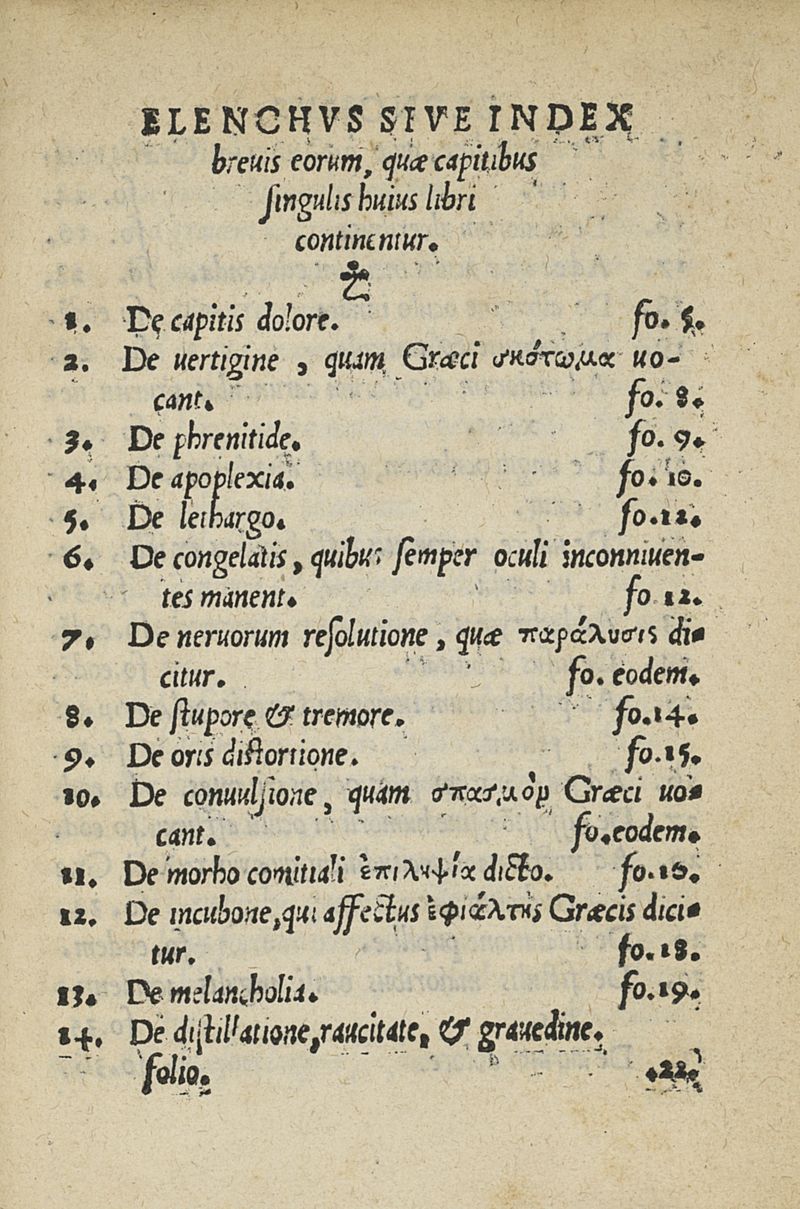 ELENCHVS SIVE INDEX
breuis eorum, quæ capitibus
ſingulis huius libri
continentur.
1. De capitis dolore. fo. 5.
2. De uertigine, quam Græci σκότωμα uo-
cant. fo. 8.
3. De phrenitide. fo. 9.
4. De apoplexia. fo. 10.
5. De lethargo. fo. 12.
6. De congelatis, quibus ſemper oculi inconniuen-
tes manent. fo 12.
7. De neruorum reſolutione, quæ παράλυσις di-
citur. fo. eodem.
8. De ſtupore & tremore. fo. 14.
9. De oris diſtortione. fo. 15.
10. De conuulſione, quam σπασμὸν Græci uo-
cant. fo. eodem.
11. De morbo comitiali ἐπιληψία dicto. fo. 16.
12. De incubone, qui affectus ἐφιάλτης Græcis dici-
tur. fo. 18.
13. De melancholia. fo. 19.
14. De diſtillatione, raucitate, & grauedine.
folio. 22.